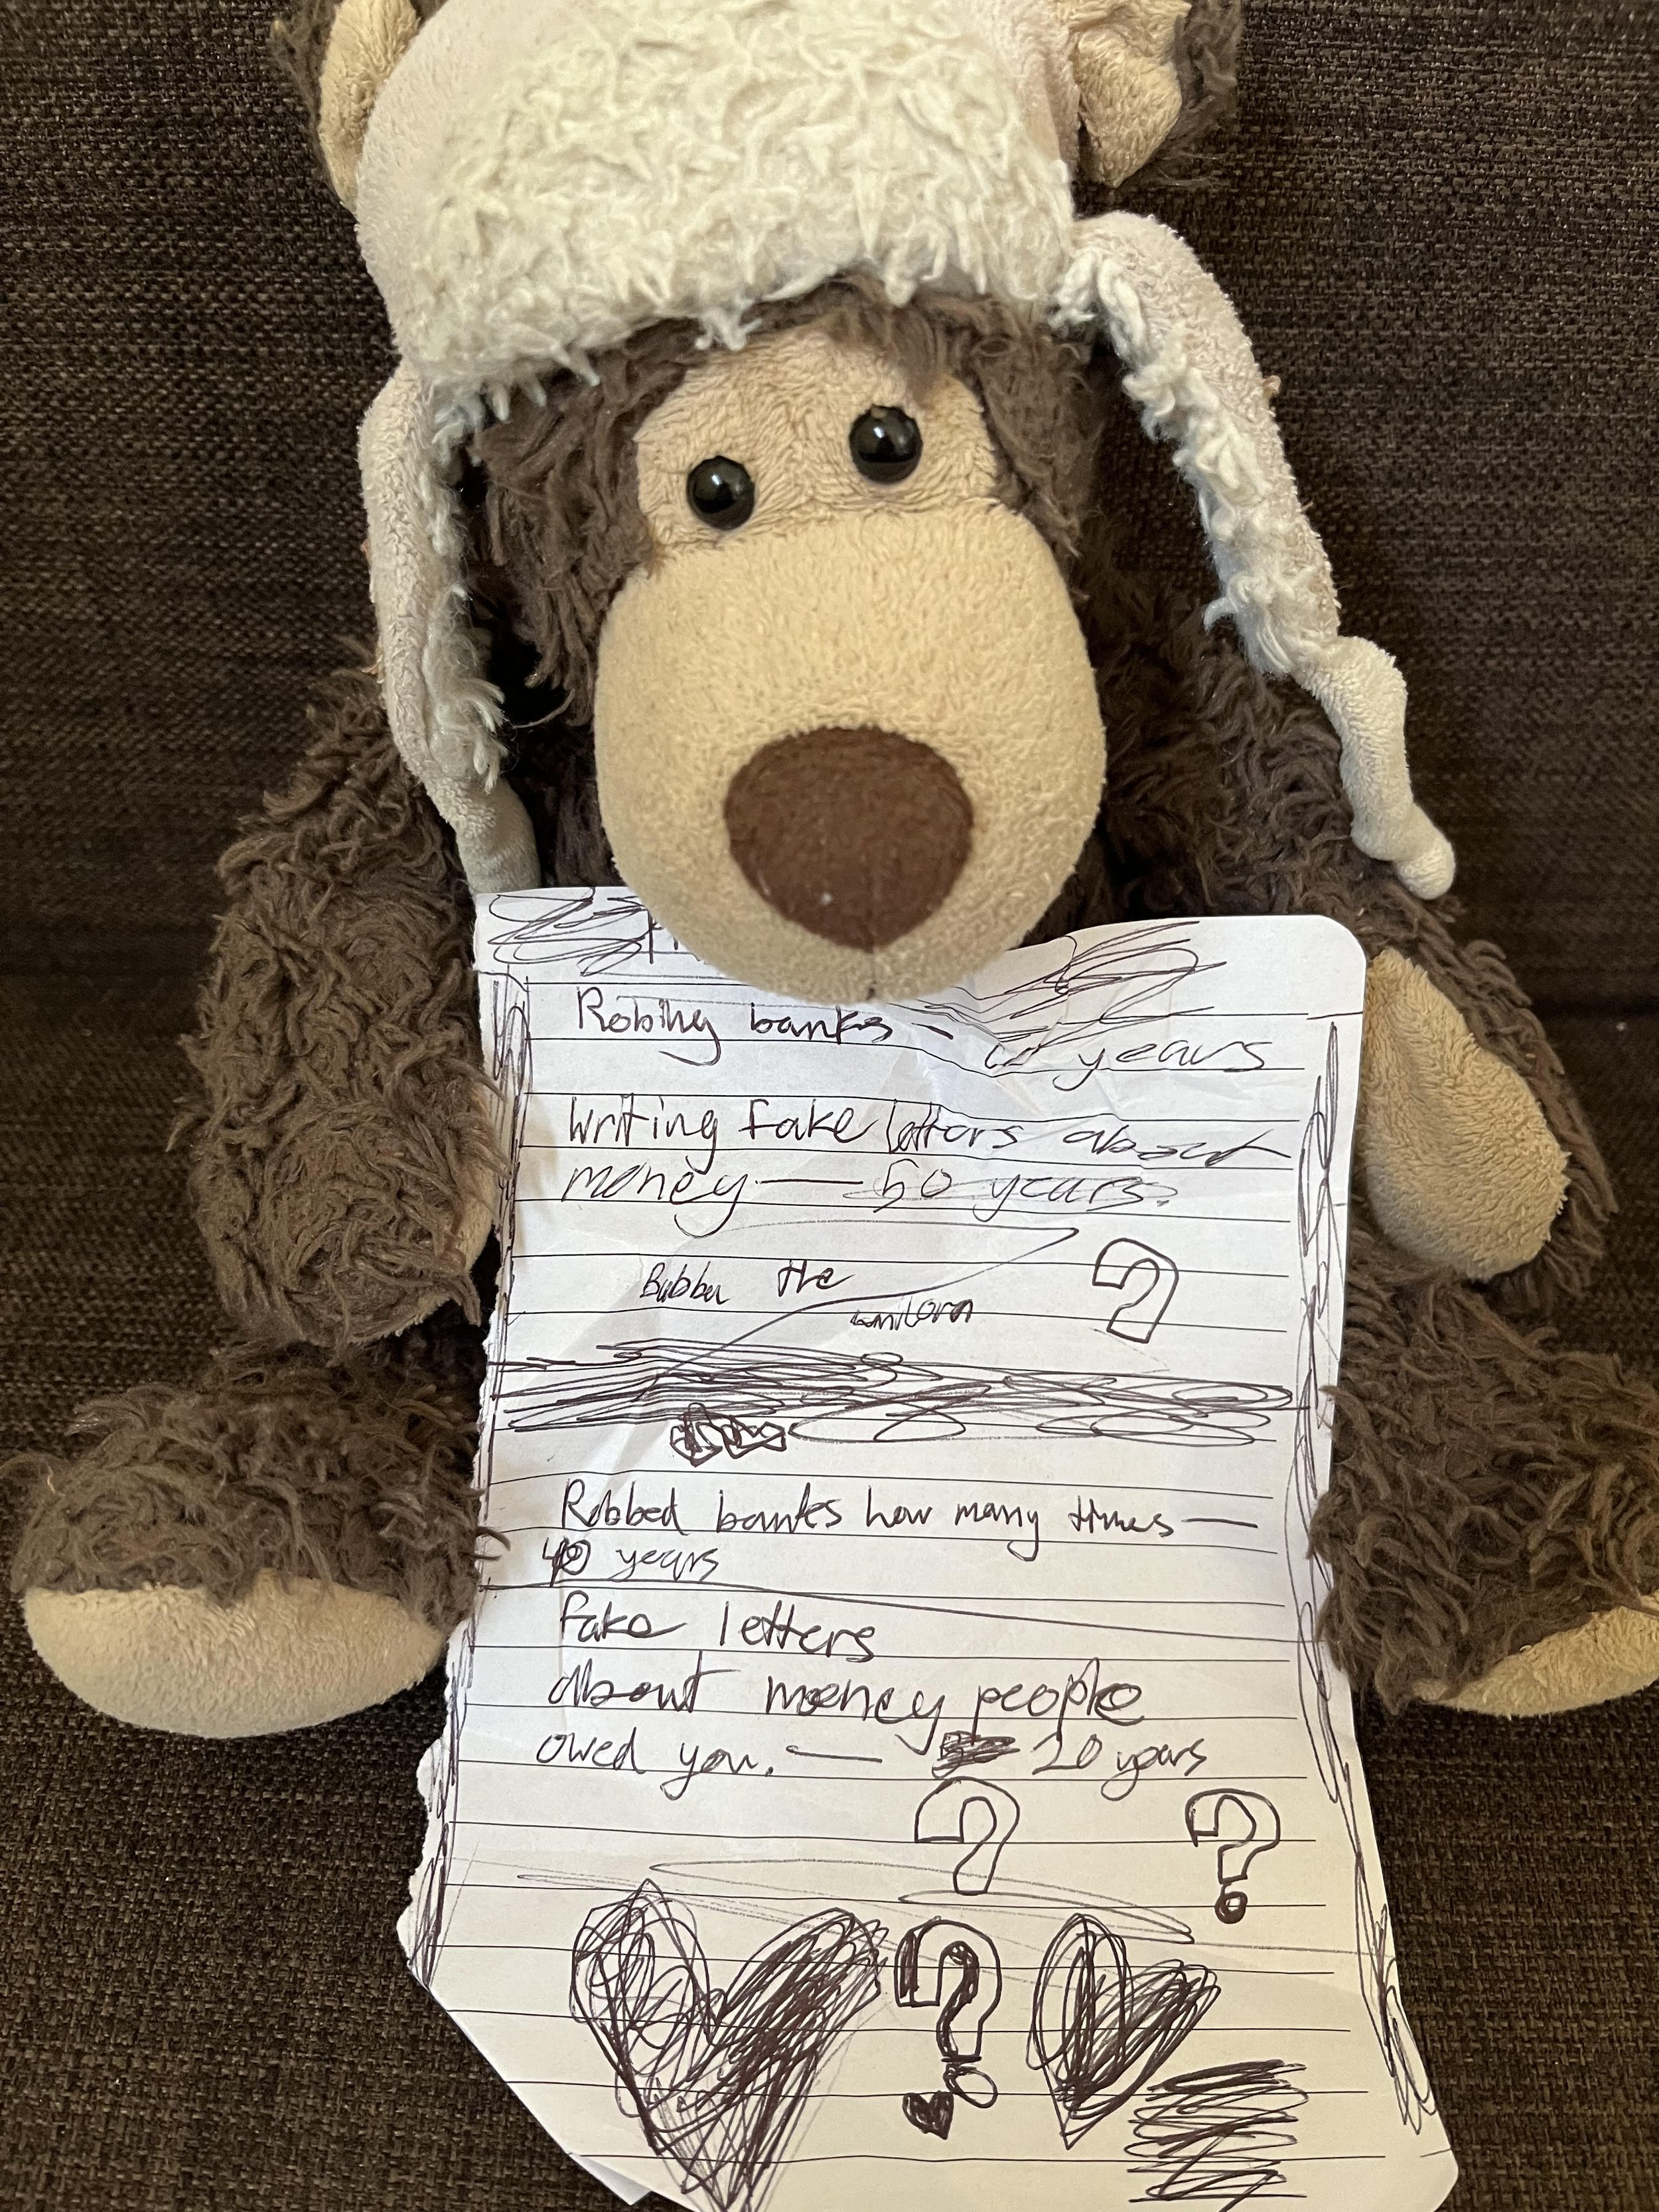 Robing banks - years
Writing fake letters about
money — 50 years.
Bubba the
unicorn
?
Robbed banks how many times —
40 years
fake letters
about money people
owed you. — 20 years
? ?
?